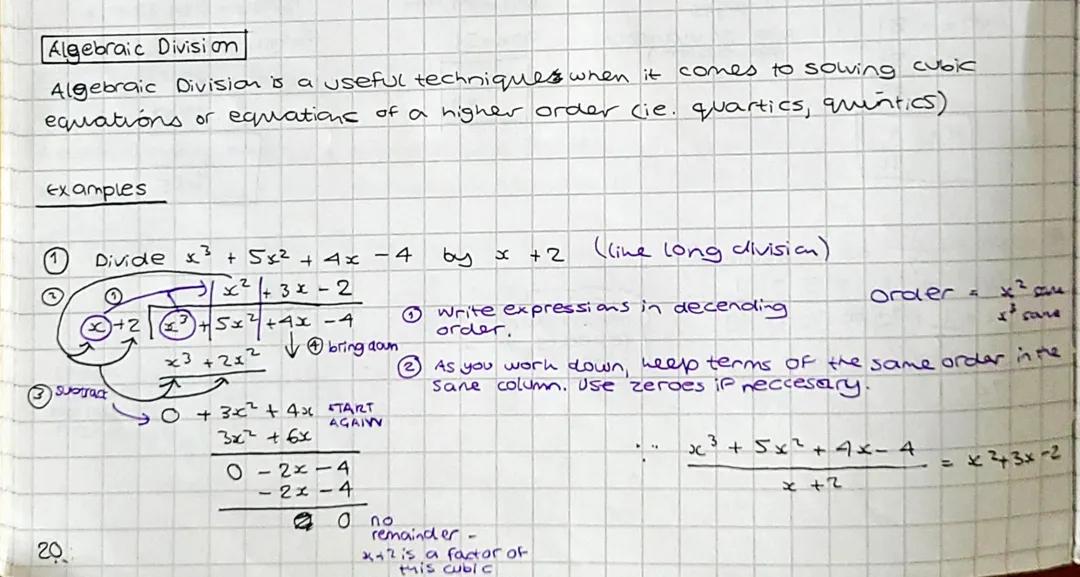 Algebraic Division
Algebraic Division is a useful techniques when it comes to solving cubic
equations or equations of a higher order (ie. quartics, quintics)
Examples
① Divide x³ + 5x² + 4x - 4 by x + 2 (like long division)
② ① x² + 3x - 2
x + 2 x³ + 5x² + 4x - 4
④ bring down
x³ + 2x²
③ subtract
0 + 3x² + 4x START
AGAIN
3x² + 6x
0 - 2x - 4
- 2x - 4
0 no
remainder -
x+2 is a factor of
this cubic
① Write expressions in decending
order.
order = x² same
x³ same
② As you work down, keep terms of the same order in the
same column. Use zeroes if neccesary.
∴ x³ + 5x² + 4x - 4
x + 2
= x²+3x-2
20.